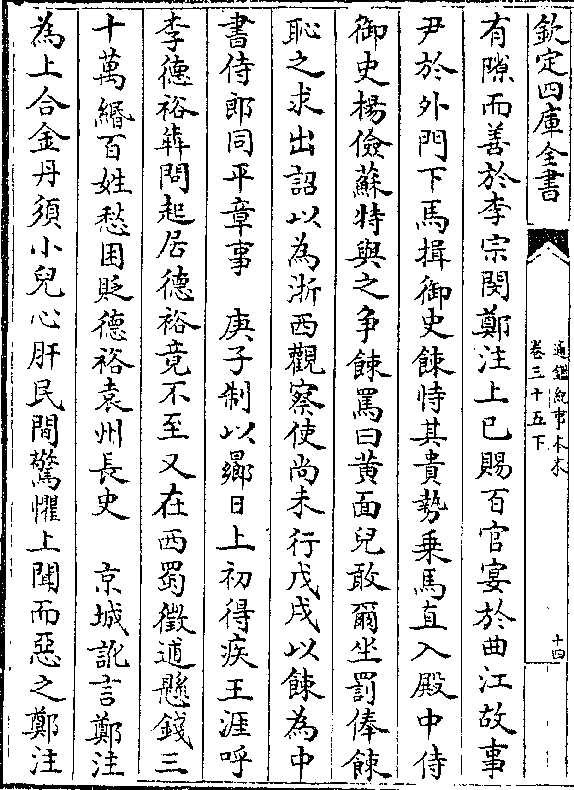 欽定四庫全書
通鑑紀事本末
卷三十五下
十四
有隙而善於李宗閔鄭注上巳賜百官宴於曲江故事
尹於外門下馬揖御史餗恃其貴勢乗馬直入殿中侍
御史楊儉蘇特與之争餗罵曰黄面兒敢爾坐罰俸餗
恥之求出詔以為浙西觀察使尚未行戊戌以餗為中
書侍郎同平章事　庚子制以曏日上初得疾王涯呼
李德裕犇問起居德裕竟不至又在西蜀徵逋懸錢三
十萬緡百姓愁困貶德裕袁州長史　京城訛言鄭注
為上合金丹須小兒心肝民間驚懼上聞而惡之鄭注